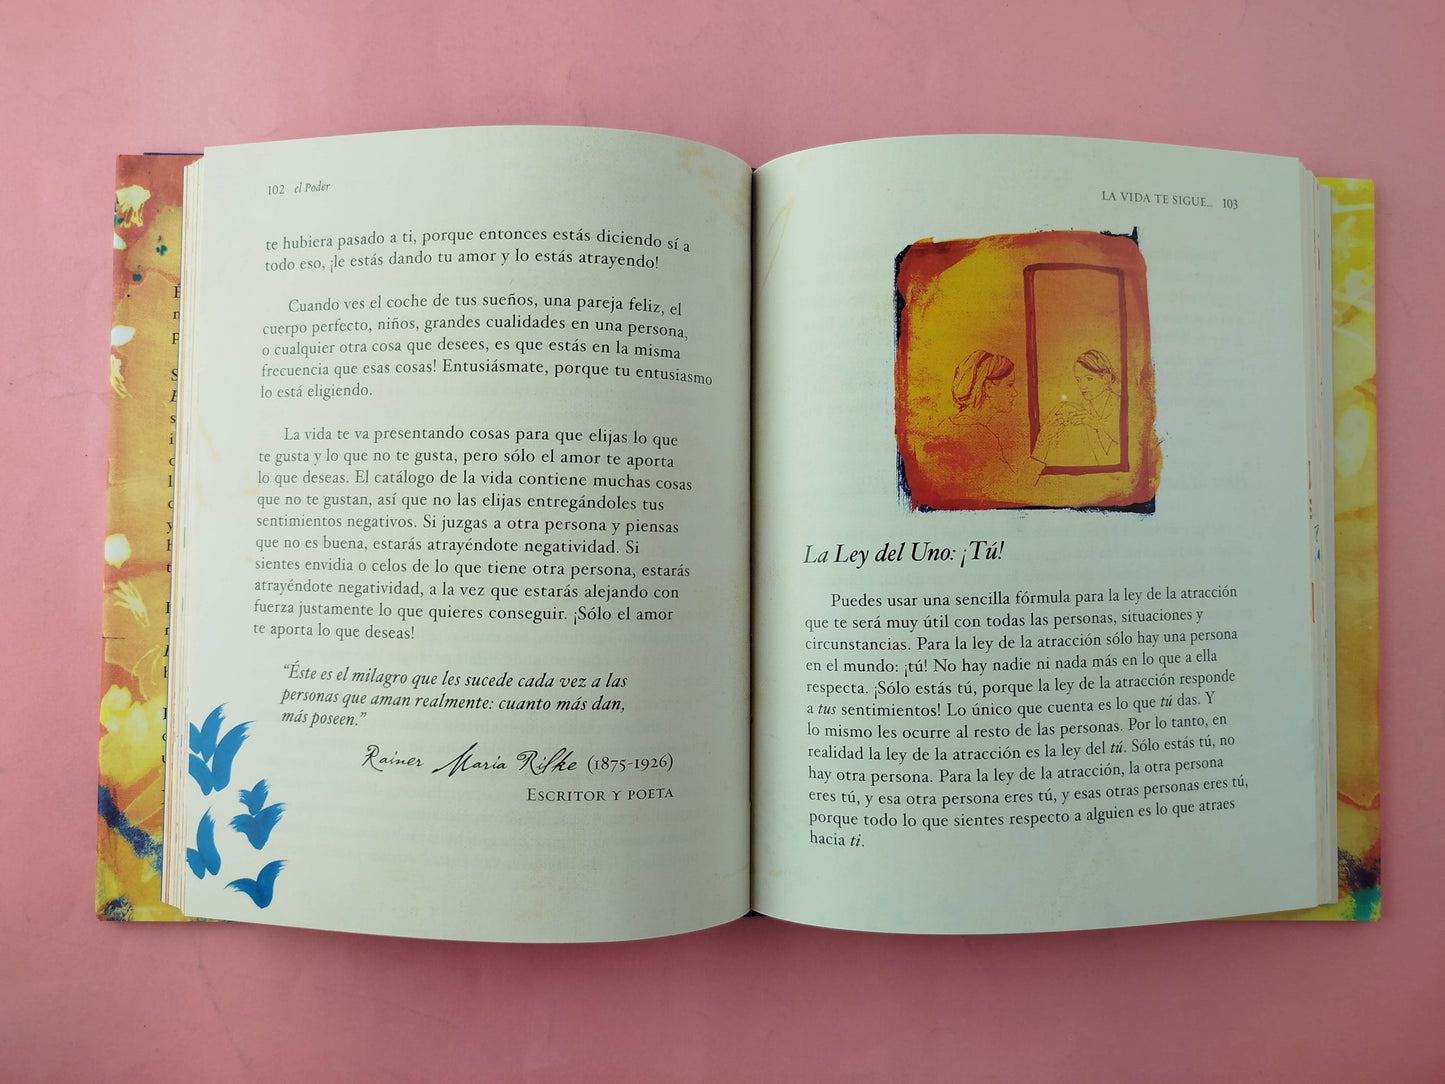 102 el Poder
te hubiera pasado a ti, porque entonces estás diciendo sí a
todo eso, ¡le estás dando tu amor y lo estás atrayendo!
Cuando ves el coche de tus sueños, una pareja feliz, el
cuerpo perfecto, niños, grandes cualidades en una persona,
o cualquier otra cosa que desees, es que estás en la misma
frecuencia que esas cosas! Entusiásmate, porque tu entusiasmo
lo está eligiendo.
La vida te va presentando cosas para que elijas lo que
te gusta y lo que no te gusta, pero sólo el amor te aporta
lo que deseas. El catálogo de la vida contiene muchas cosas
que no te gustan, así que no las elijas entregándoles tus
sentimientos negativos. Si juzgas a otra persona y piensas
que no es buena, estarás atrayéndote negatividad. Si
sientes envidia o celos de lo que tiene otra persona, estarás
atrayéndote negatividad, a la vez que estarás alejando con
fuerza justamente lo que quieres conseguir. ¡Sólo el amor
te aporta lo que deseas!
“Éste es el milagro que les sucede cada vez a las
personas que aman realmente: cuanto más dan,
más poseen.”
Rainer Maria Rilke (1875-1926)
ESCRITOR Y POETA
LA VIDA TE SIGUE... 103
La Ley del Uno: ¡Tú!
Puedes usar una sencilla fórmula para la ley de la atracción
que te será muy útil con todas las personas, situaciones y
circunstancias. Para la ley de la atracción sólo hay una persona
en el mundo: ¡tú! No hay nadie ni nada más en lo que a ella
respecta. ¡Sólo estás tú, porque la ley de la atracción responde
a tus sentimientos! Lo único que cuenta es lo que tú das. Y
lo mismo les ocurre al resto de las personas. Por lo tanto, en
realidad la ley de la atracción es la ley del tú. Sólo estás tú, no
hay otra persona. Para la ley de la atracción, la otra persona
eres tú, y esa otra persona eres tú, y esas otras personas eres tú,
porque todo lo que sientes respecto a alguien es lo que atraes
hacia ti.